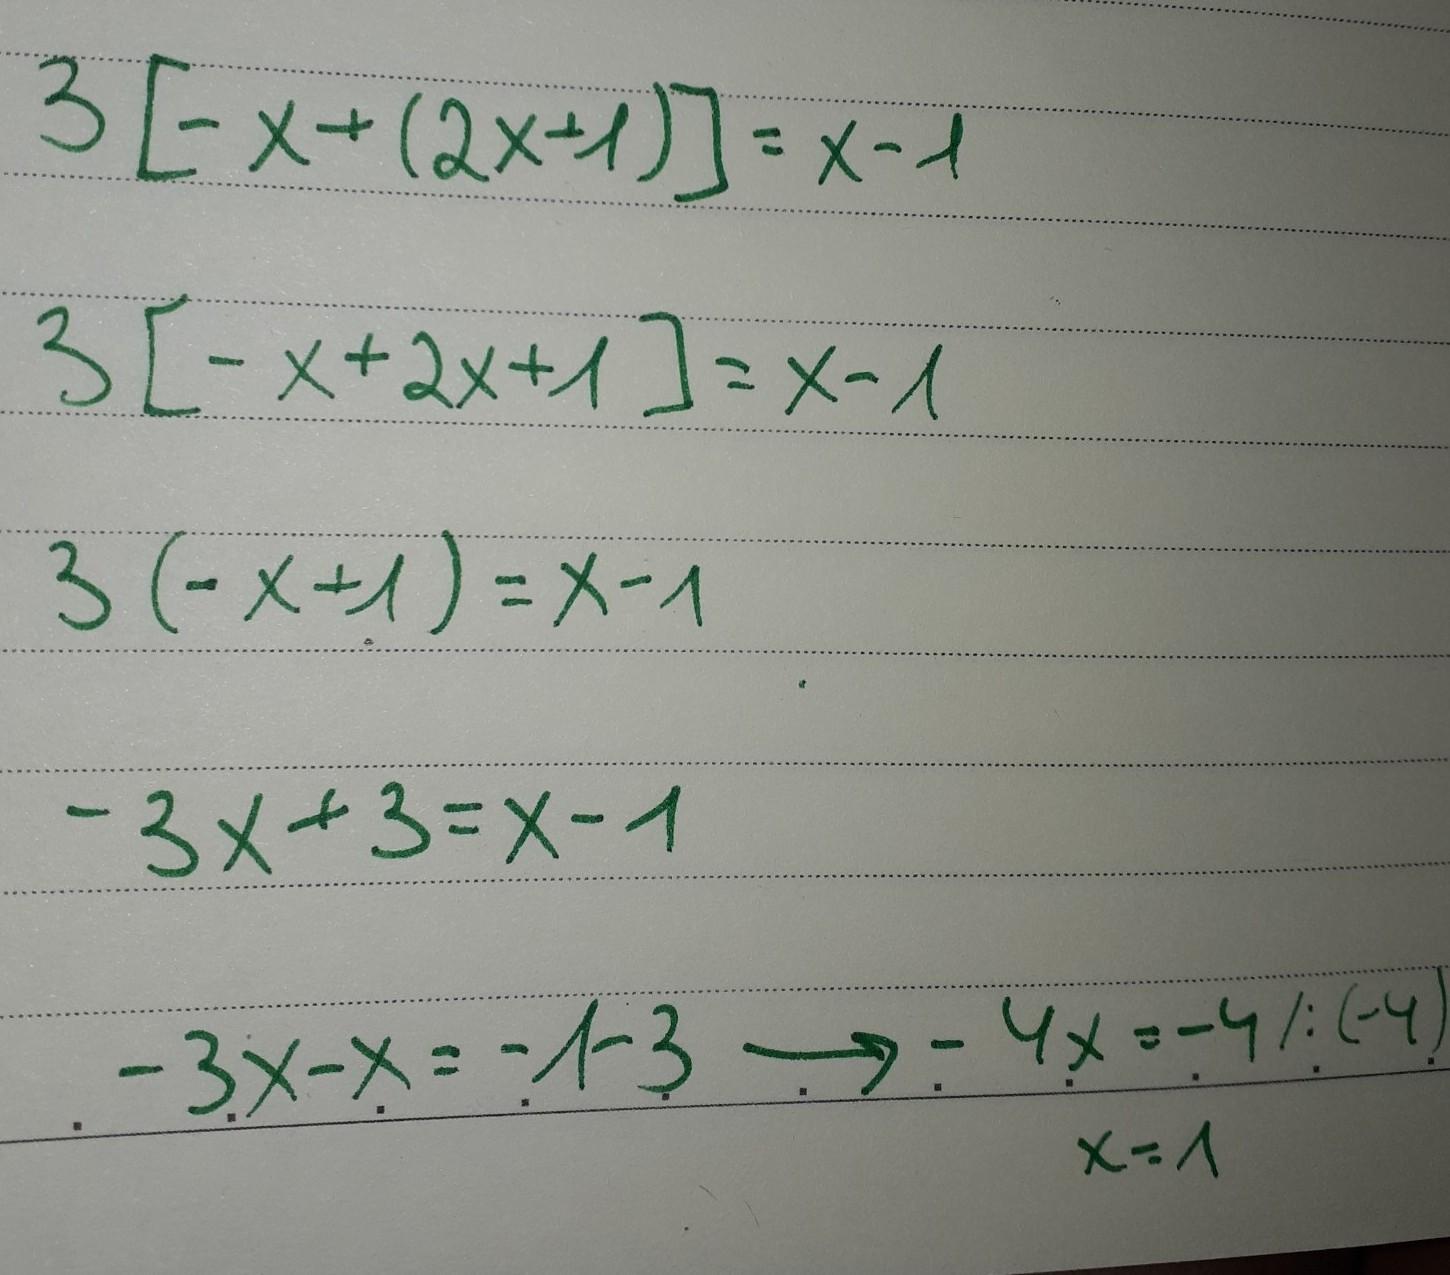 3[-x+(2x+1)]=x-1
3[-x+2x+1]=x-1
3(-x+1)=x-1
-3x+3=x-1
-3x-x=-1-3 → -4x=-4/:(-4)
x=1